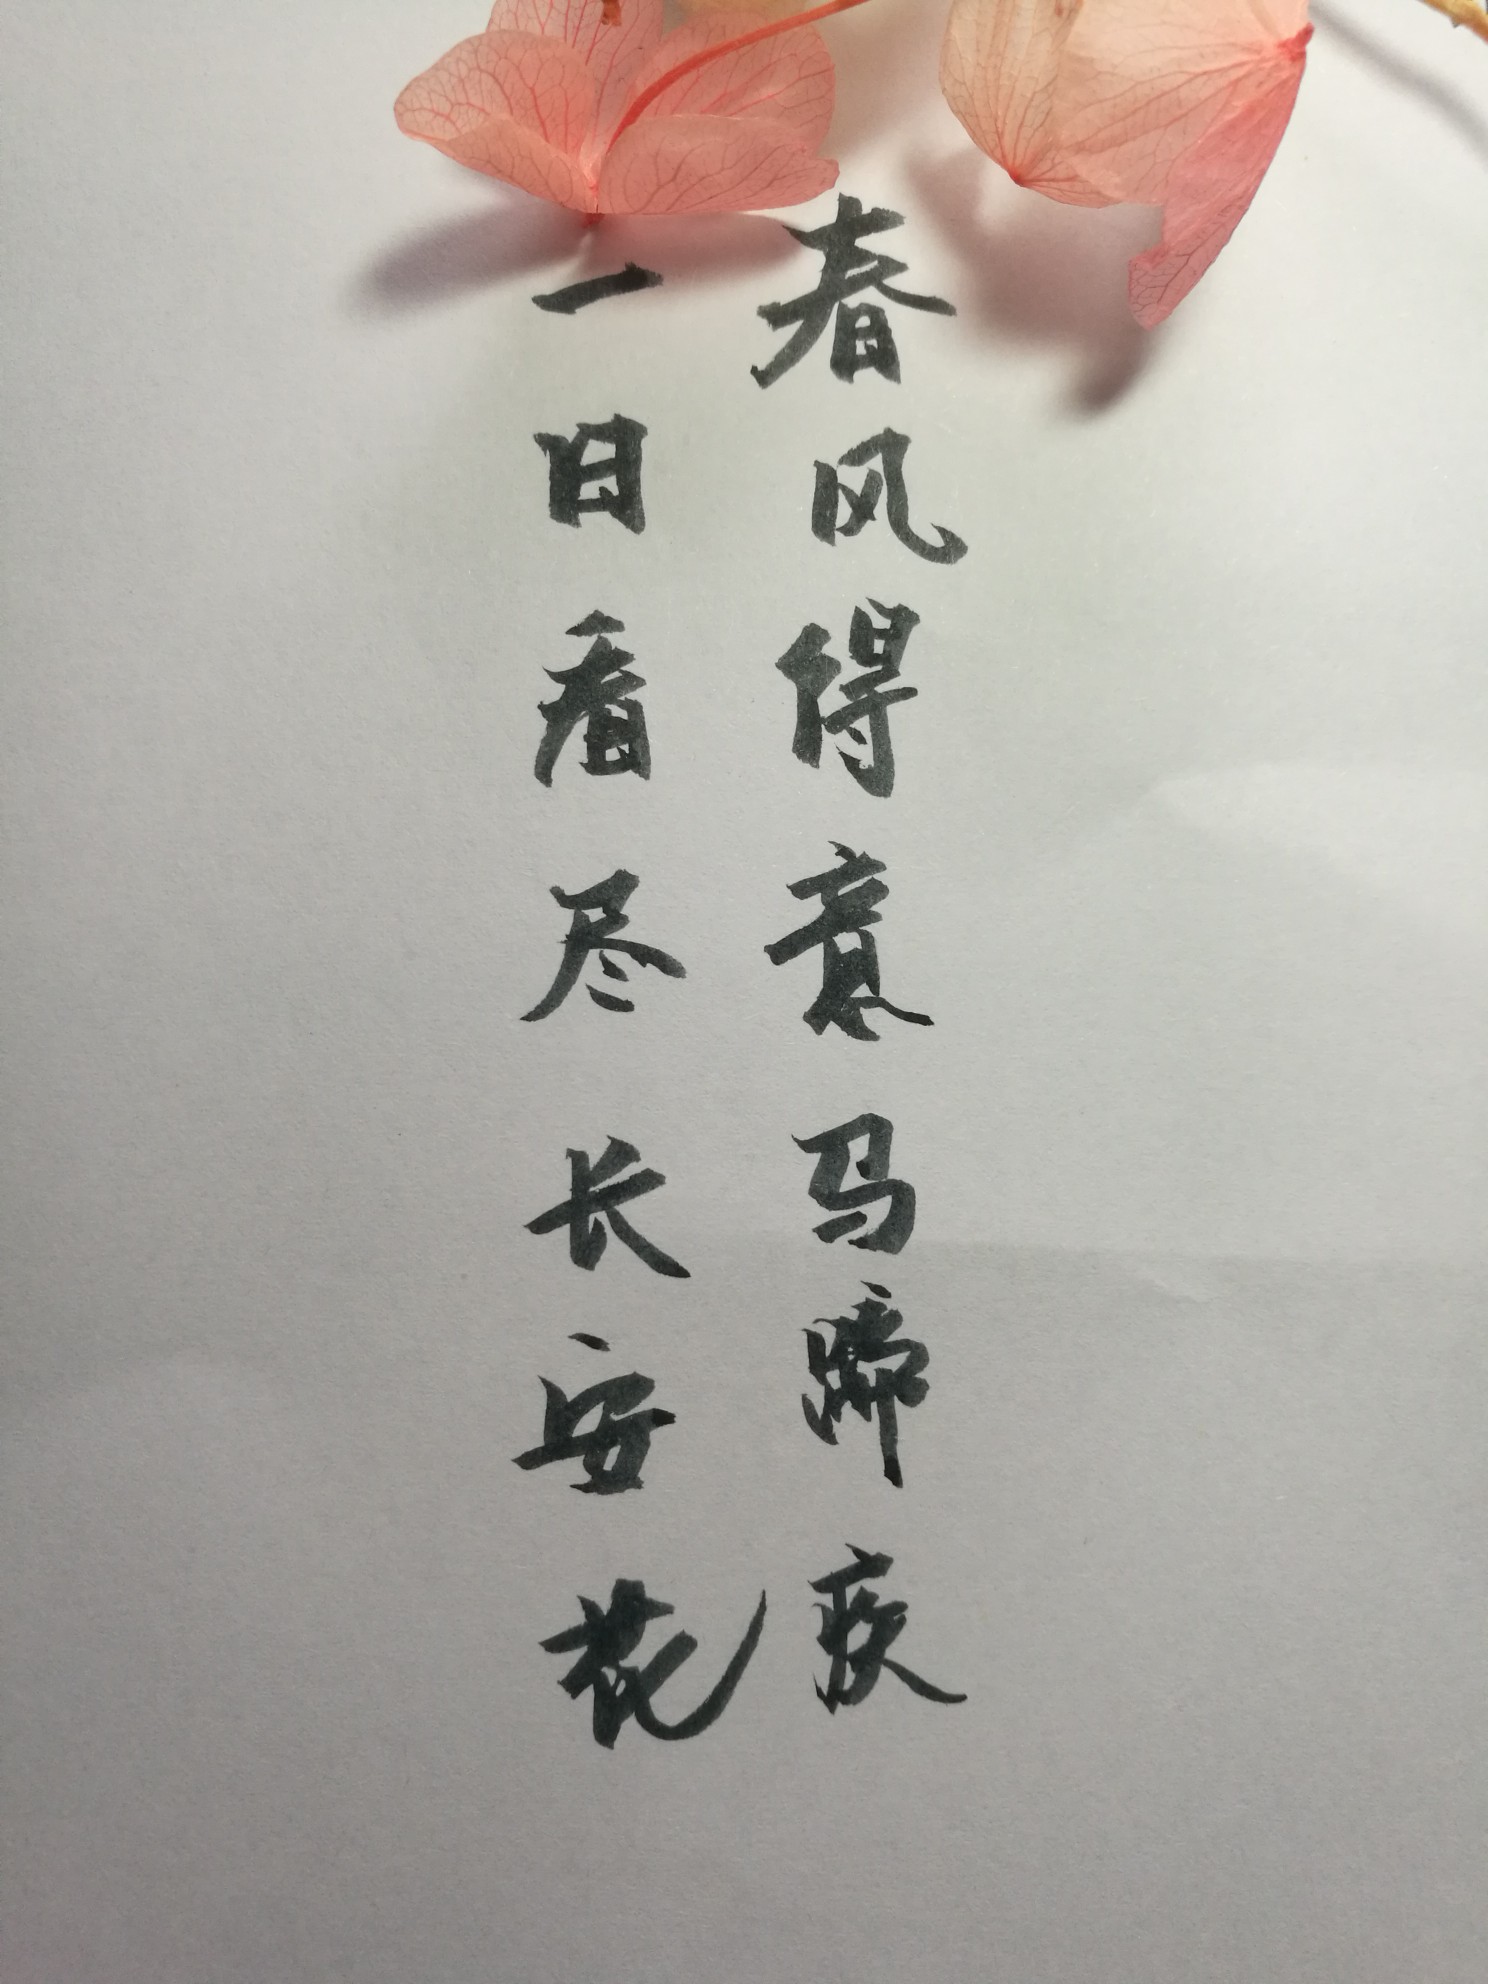 春风得意马蹄疾
一日看尽长安花